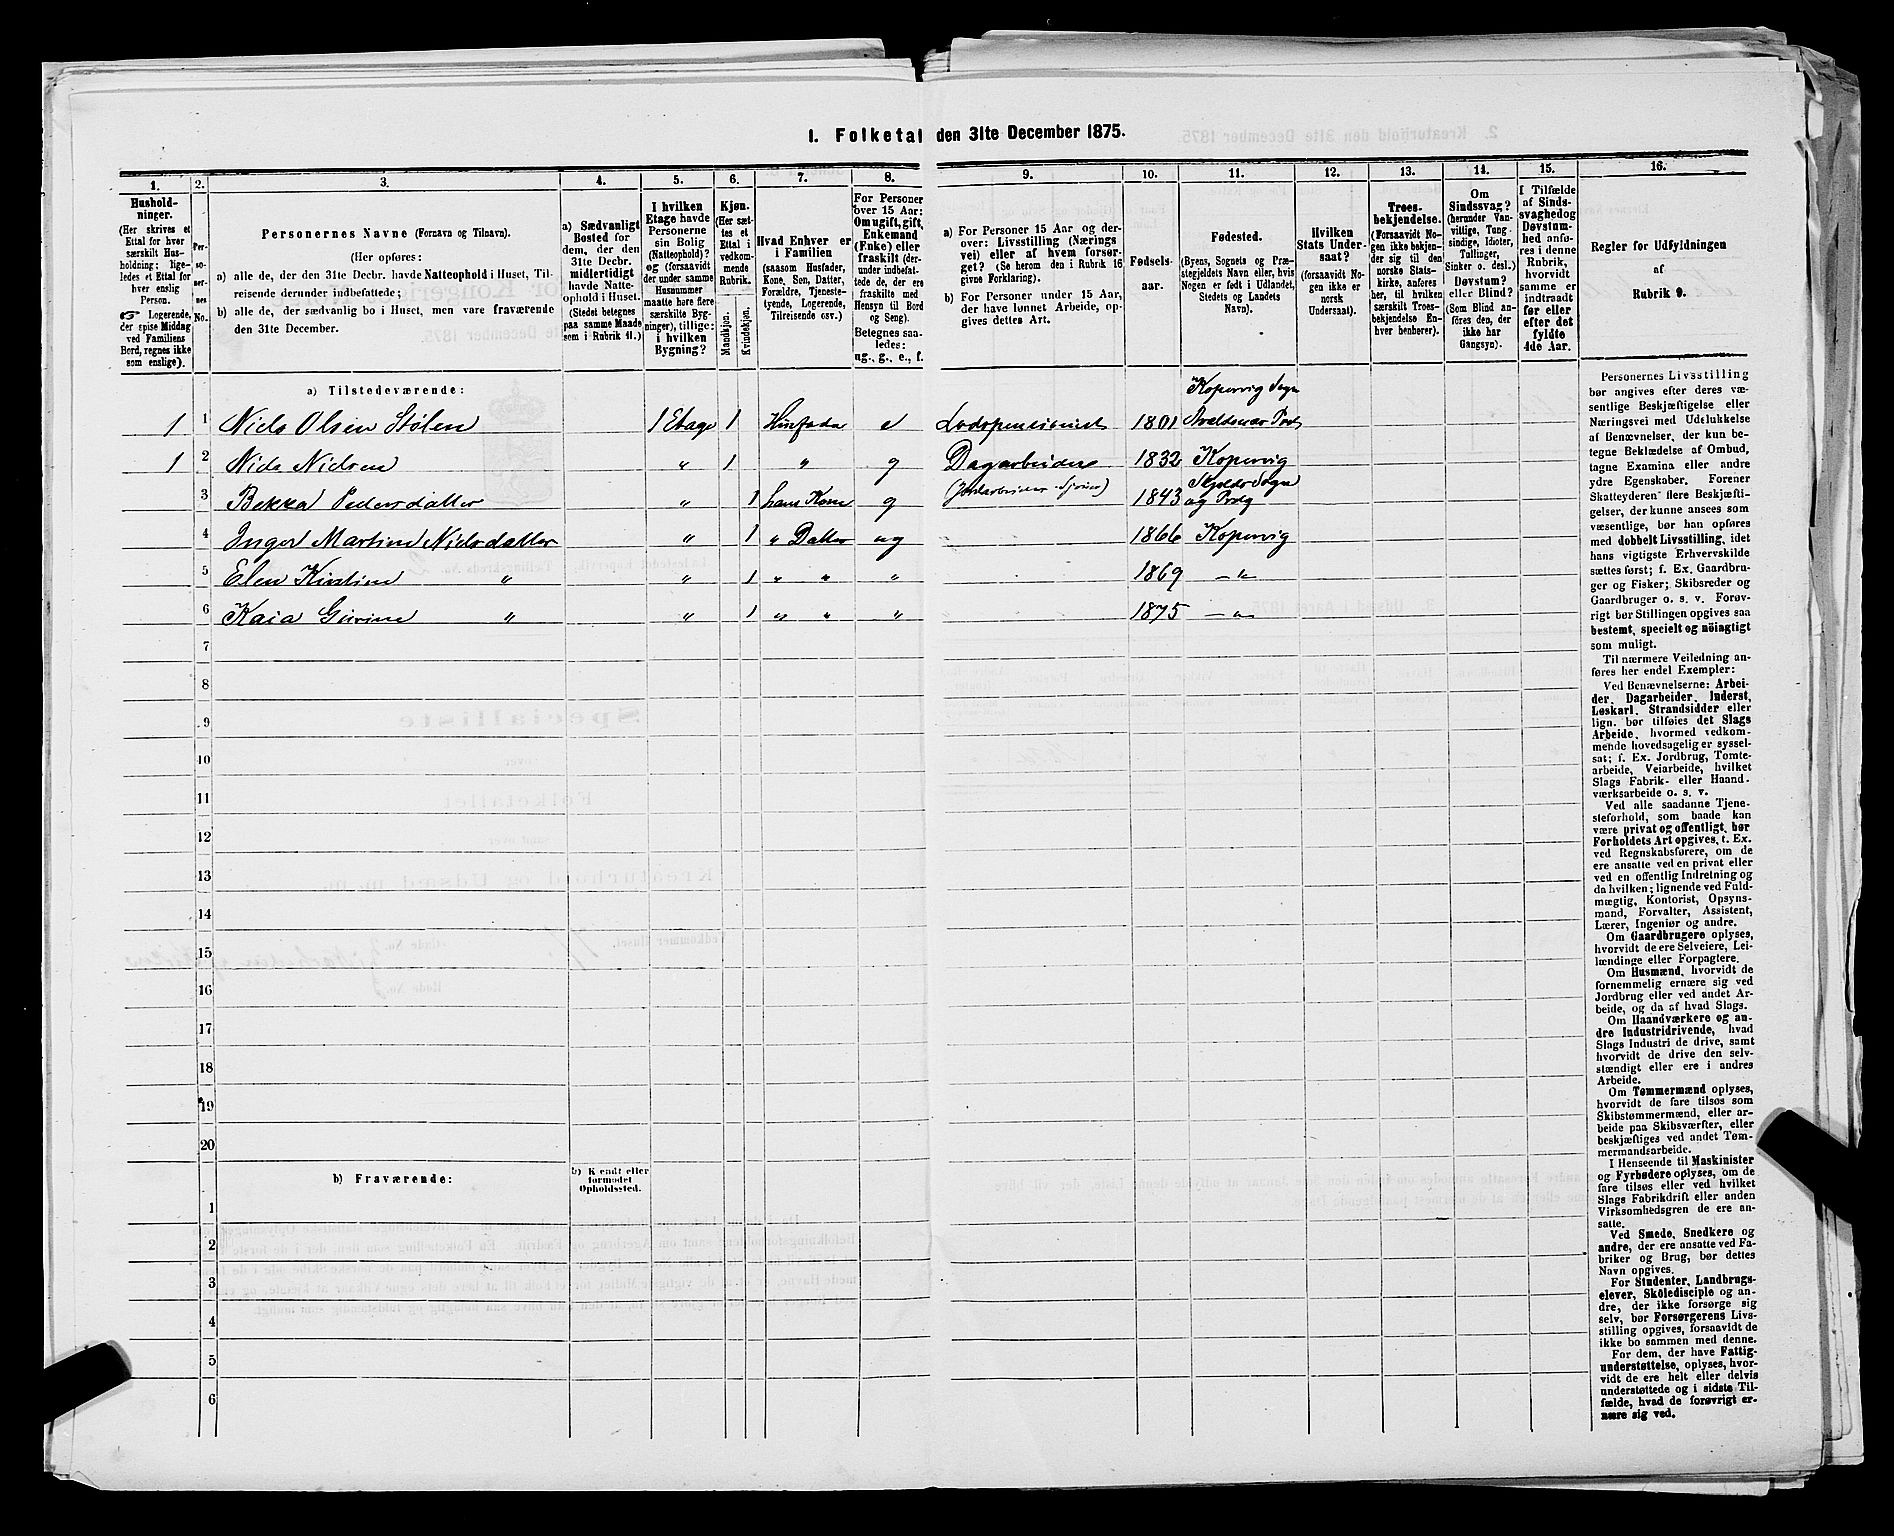 1. Folketal den 31te December 1875.
1.
2.
3.
4.
5.
6.
7.
8.
9.
10.
11.
12.
13.
14.
15.
16.
Hushold-
ninger.
(Her skrives et
Ettal for hver
særskilt Hus-
holdning; lige-
ledes et Ettal for
hver enslig
Person.
☞ Logerende,
der spise Middag
ved Familiens
Bord, regnes ikke
som enslige).
Per-
so-
ner-
nes
No.
Personernes Navne (Fornavn og Tilnavn).
(Her opføres:
a) alle de, der den 31te Decbr. havde Natteophold i Huset, Til-
reisende derunder indbefattede;
b) alle de, der sædvanlig bo i Huset, men vare fraværende
den 31te December.
a) Sædvanligt
Bosted for
dem, der den
31te Decbr.
midlertidigt
havde Natte-
ophold i Huset.
(Stedet betegnes
paa samme Maade
som i Rubrik 11.)
I hvilken
Etage havde
Personerne
sin Bolig
(Natteophold)?
og (forsaavidt
der under samme
Husnummer
maatte høre flere
særskilte Byg-
ninger), tillige:
i hvilken
Bygning?
Kjøn.
(Her sæt-
tes et
Ettal i
vedkom-
mende
Rubrik.
Mandkjøn.
Kvindekjøn.
Hvad Enhver er
i Familien
(saasom Husfader,
Kone, Søn, Datter,
Forældre, Tjeneste-
tyende, Logerende,
Tilreisende osv.)
For Personer
over 15 Aar:
Om ugift, gift,
Enkemand
(Enke) eller
fraskilt (der-
under indbefat-
tede de, der ere
fraskilte med
Hensyn til Bord
og Seng).
Betegnes saa-
ledes:
ug., g., e., f.
a) For Personer 15 Aar og der-
over: Livsstilling (Nærings
vei) eller af hvem forsør-
get? (Se herom den i Rubrik 16
givne Forklaring).
b) For Personer under 15 Aar,
der have lønnet Arbeide, op-
gives dettes Art.
Fødsels-
aar.
Fødested.
(Byens, Sognets og Præ-
stegjeldets Navn eller, hvis
Nogen er født i Udlandet,
Stedets og Landets
Navn).
Hvilken
Stats Under-
saat?
(forsaavidt No-
gen ikke er
norsk
Undersaat).
Troes-
bekjendelse.
(Forsaavidt No-
gen ikke bekjen-
der sig til den
norske Stats-
kirke, anføres
her, til hvilken
særskilt Troes-
bekjendelse En-
hver henhører).
Om
Sindssvag?
(herunder Van-
vittige, Tung-
sindige, Idioter,
Tullinger,
Sinker o. desl.)
Døvstum?
eller Blind?
(Som Blind an-
føres den, der
ikke har
Gangsyn).
I Tilfælde
af Sinds-
svaghed og
Døvstum-
hed anfø-
res i denne
Rubrik,
hvorvidt
samme er
indtraadt
før eller
efter det
fyldte
4de Aar.
Regler for Udfyldningen
af
Rubrik 9.
a) Tilstedeværende:
1 1 Niels Olsen Stølen 1 Etage 1 Husfader e Lodspensionist 1801 Kopervig Sogn Avaldsnæs
1 2 Niels Nielsen " 1 " g Dagarbeider 1832 Kopervig
3 Bekka Pedersdatter " 1 hans Kone g 1843 Skjolds Sogn og Prdg
4 Inger Martine Nielsdatter " 1 " Datter ug 1866 Kopervig
5 Elen Kirstine " " 1 " " " 1869 — " —
6 Kaia Gurine " " 1 " " " 1875 — " —
7
8
9
10
11
12
13
14
15
16
17
18
19
20
b) Fraværende:
b) Kjendt eller
formodet
Opholdssted.
1
2
3
4
5
6
Personernes Livsstilling
bør angives efter deres væ-
sentlige Beskjæftigelse eller
Næringsvei med Udelukkelse
af Benævnelser, der kun be-
tegne Beklædelse af Ombud,
tagne Examina eller andre
ydre Egenskaber. Forener
Skatteyderen flere Beskjæfti-
gelser, der kunne ansees som
væsentlige, bør han opføres
med dobbelt Livsstilling, idet
hans vigtigste Erhvervskilde
sættes først; f. Ex. Gaardbru-
ger og Fisker; Skibsreder og
Gaardbruger o. s. v. Forøv-
rigt bør Stillingen opgives saa
bestemt, specielt og nöiagtigt
som muligt.
Til nærmere Veiledning an-
føres her endel Exempler:
Ved Benævnelserne: Arbei-
der, Dagarbeider, Inderst,
Løskarl, Strandsidder eller
lign. bør tilføies det Slags
Arbeide, hvormed vedkom-
mende hovedsagelig er syssel-
sat; f. Ex. Jordbrug, Tomte-
arbeide, Veiarbeide, hvilket
Slags Fabrik- eller Haand-
værksarbeide o. s. v.
Ved alle saadanne Tjene-
steforhold, som baade kan
være privat og offentligt, bør
Forholdets Art opgives, t. Ex.
ved Regnskabsførere, om de
ere ansatte ved en privat eller
ved en offentlig Indretning og
da hvilken; lignende ved Fuld-
mægtig, Kontorist, Opsyns-
mand, Forvalter, Assistent,
Lærer, Ingeniør og andre.
Om Gaardbrugere oplyses,
hvorvidt de ere Selveiere, Lei-
lændinge eller Forpagtere.
Om Husmænd, hvorvidt de
fornemmelig ernære sig ved
Jordbrug eller ved andet Ar-
beide, og da af hvad Slags.
Om Haandværkere og an-
dre Industridrivende, hvad
Slags Industri de drive, samt
hvorvidt de drive den selv-
stændigt eller ere i andres
Arbeide.
Om Tømmermænd oplyses,
hvorvidt de fare tilsøs som
Skibstømmermænd, eller ar-
beide paa Skibsværfter, eller
beskjæftiges ved andet Tøm-
mermandsarbeide.
I Henseende til Maskinister
og Fyrbødere oplyses, om de
fare tilsøs eller ved hvilket
Slags Fabrikdrift eller anden
Virksomhedsgren de ere an-
satte.
Ved Smede, Snedkere og
andre, der ere ansatte ved Fa-
briker og Brug, bør dettes
Navn opgives.
For Studenter, Landbrugs-
elever, Skoledisciple og an-
dre, der ikke forsørge sig
selv, bør Forsørgerens Livs-
stilling opgives, forsaavidt de
ikke bo sammen med denne.
For dem, der have Fattig-
understøttelse, oplyses, hvor-
vidt de ere helt eller delvis
understøttede og i sidste Til-
fælde, hvad de forøvrigt er-
nære sig ved.